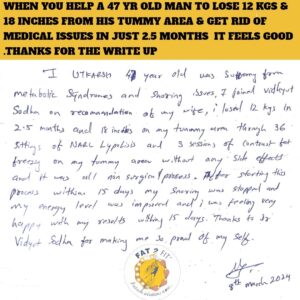 WHEN YOU HELP A 47 YR OLD MAN TO LOSE 12 KGS &
18 INCHES FROM HIS TUMMY AREA & GET RID OF
MEDICAL ISSUES IN JUST 2.5 MONTHS IT FEELS GOOD
.THANKS FOR THE WRITE UP
I UTKARSH 47 year old was suffering from
metabolic syndromes and snoring issues, I joined Vidyut
Sodha on recomendation of my wife, i losed 12 kgs in
2.5 months and 18 inches on my tummy area through 36
Sittings of Lypolisis and 3 sessions of contrast fat
freezing on my tummy area without any side effects
and it was all non surgical process. After starting this
process within 15 days my snoring was stopped and
my energy level was improved and i was feeling very
happy with my results withing 15 days. Thanks to Dr
Vidyut Sodha for making me so proud of my self.
FAT 2 FIT
8th march 2024